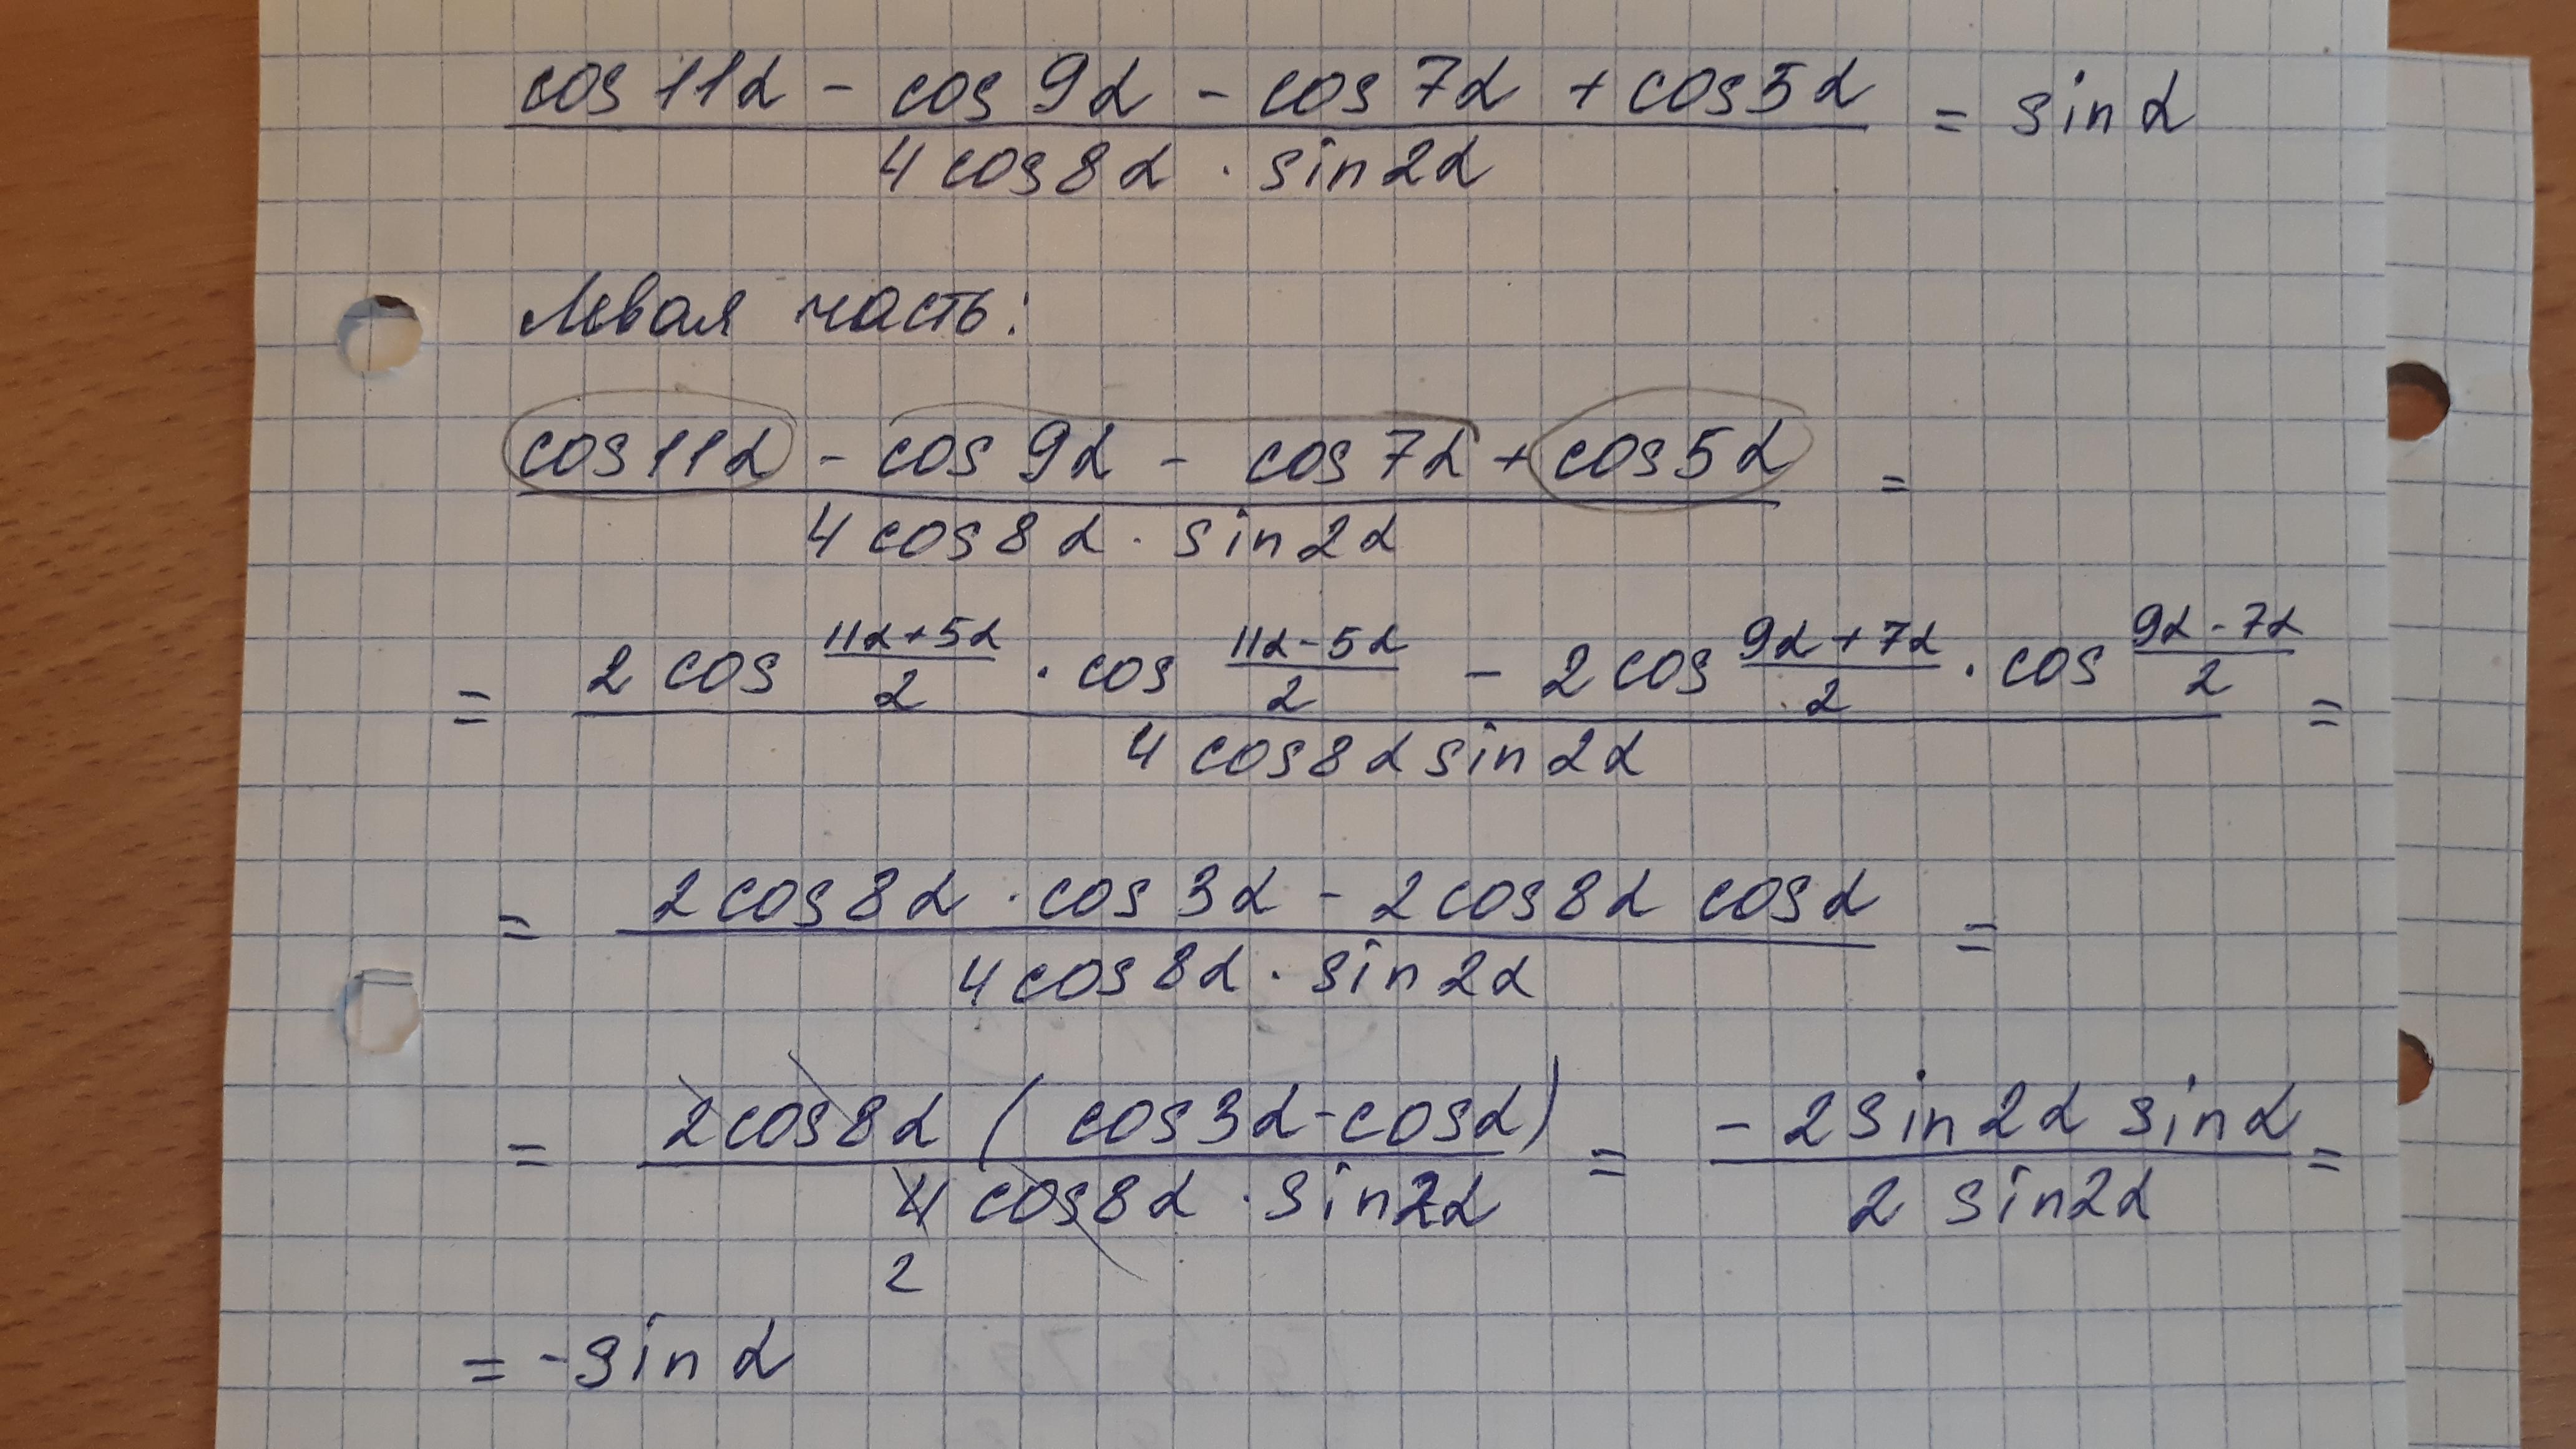 cos 11α - cos 9α - cos 7α + cos 5α = sin α
4 cos 8α · sin 2α
Левая часть:
cos 11α - cos 9α - cos 7α + cos 5α =
4 cos 8α · sin 2α
= 2 cos (11α+5α)/2 · cos (11α-5α)/2 - 2 cos (9α+7α)/2 · cos (9α-7α)/2 =
4 cos 8α sin 2α
= 2 cos 8α · cos 3α - 2 cos 8α cos α =
4 cos 8α · sin 2α
= 2 cos 8α ( cos 3α - cos α) = - 2 sin 2α sin α =
4 cos 8α · sin 2α 2 sin 2α
2
= - sin α